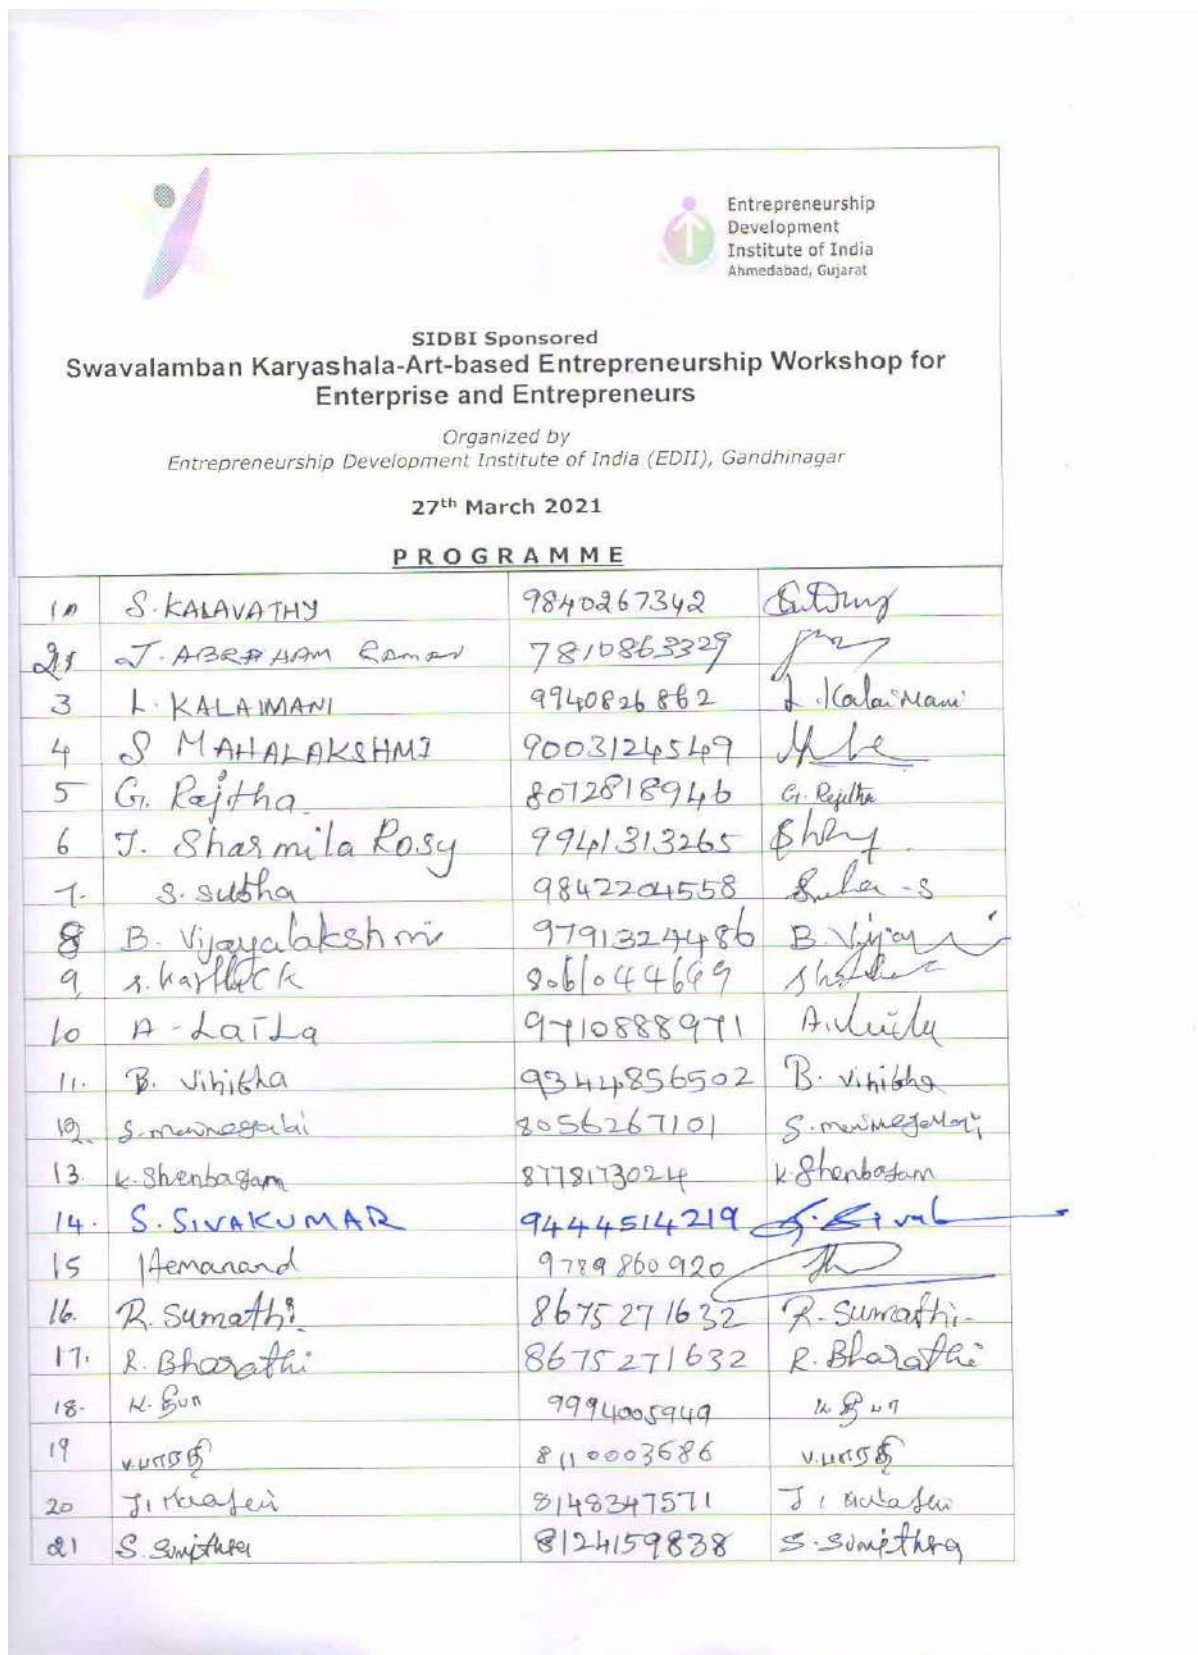 Entrepreneurship
Development
Institute of India
Ahmedabad, Gujarat
SIDBI Sponsored
Swavalamban Karyashala-Art-based Entrepreneurship Workshop for
Enterprise and Entrepreneurs
Organized by
Entrepreneurship Development Institute of India (EDII), Gandhinagar
27th March 2021
PROGRAMME
1 S. KALAVATHY 9840267342
2 J. ABRAHAM Raman 7810863329
3 L. KALAIMANI 9940826862 L. KalaiMani
4 S MAHALAKSHMI 9003124549
5 G. Rajitha 8072818946 G. Rajitha
6 J. Sharmila Rosy 9941313265
7. S. Subha 9842204558
8 B. Vijayalakshmi 9791324486
9 S. Karthick 8061044649
10 A - LaiLa 9710888971
11. B. Vinitha 9344856502 B. Vinitha
12. 8056267101
13. K. Shenbagam 8778173024 K. Shenbagam
14. S. SIVAKUMAR 9444514219
15 Hemanand 9789860920
16. R. Sumathi 8675271632 R. Sumathi
17. R. Bharathi 8675271632 R. Bharathi
18. 9994005949
19 V. பாரதி 8110003686 V. பாரதி
20 8148347571
21 S. Sumithra 8124159838 S. Sumithra